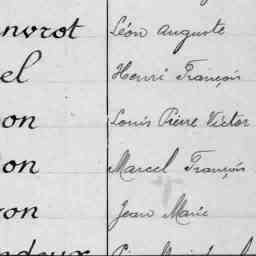 nvrot Léon Auguste
el Henri François
on Louis Pierre Victor
on Marcel François
on Jean Marie